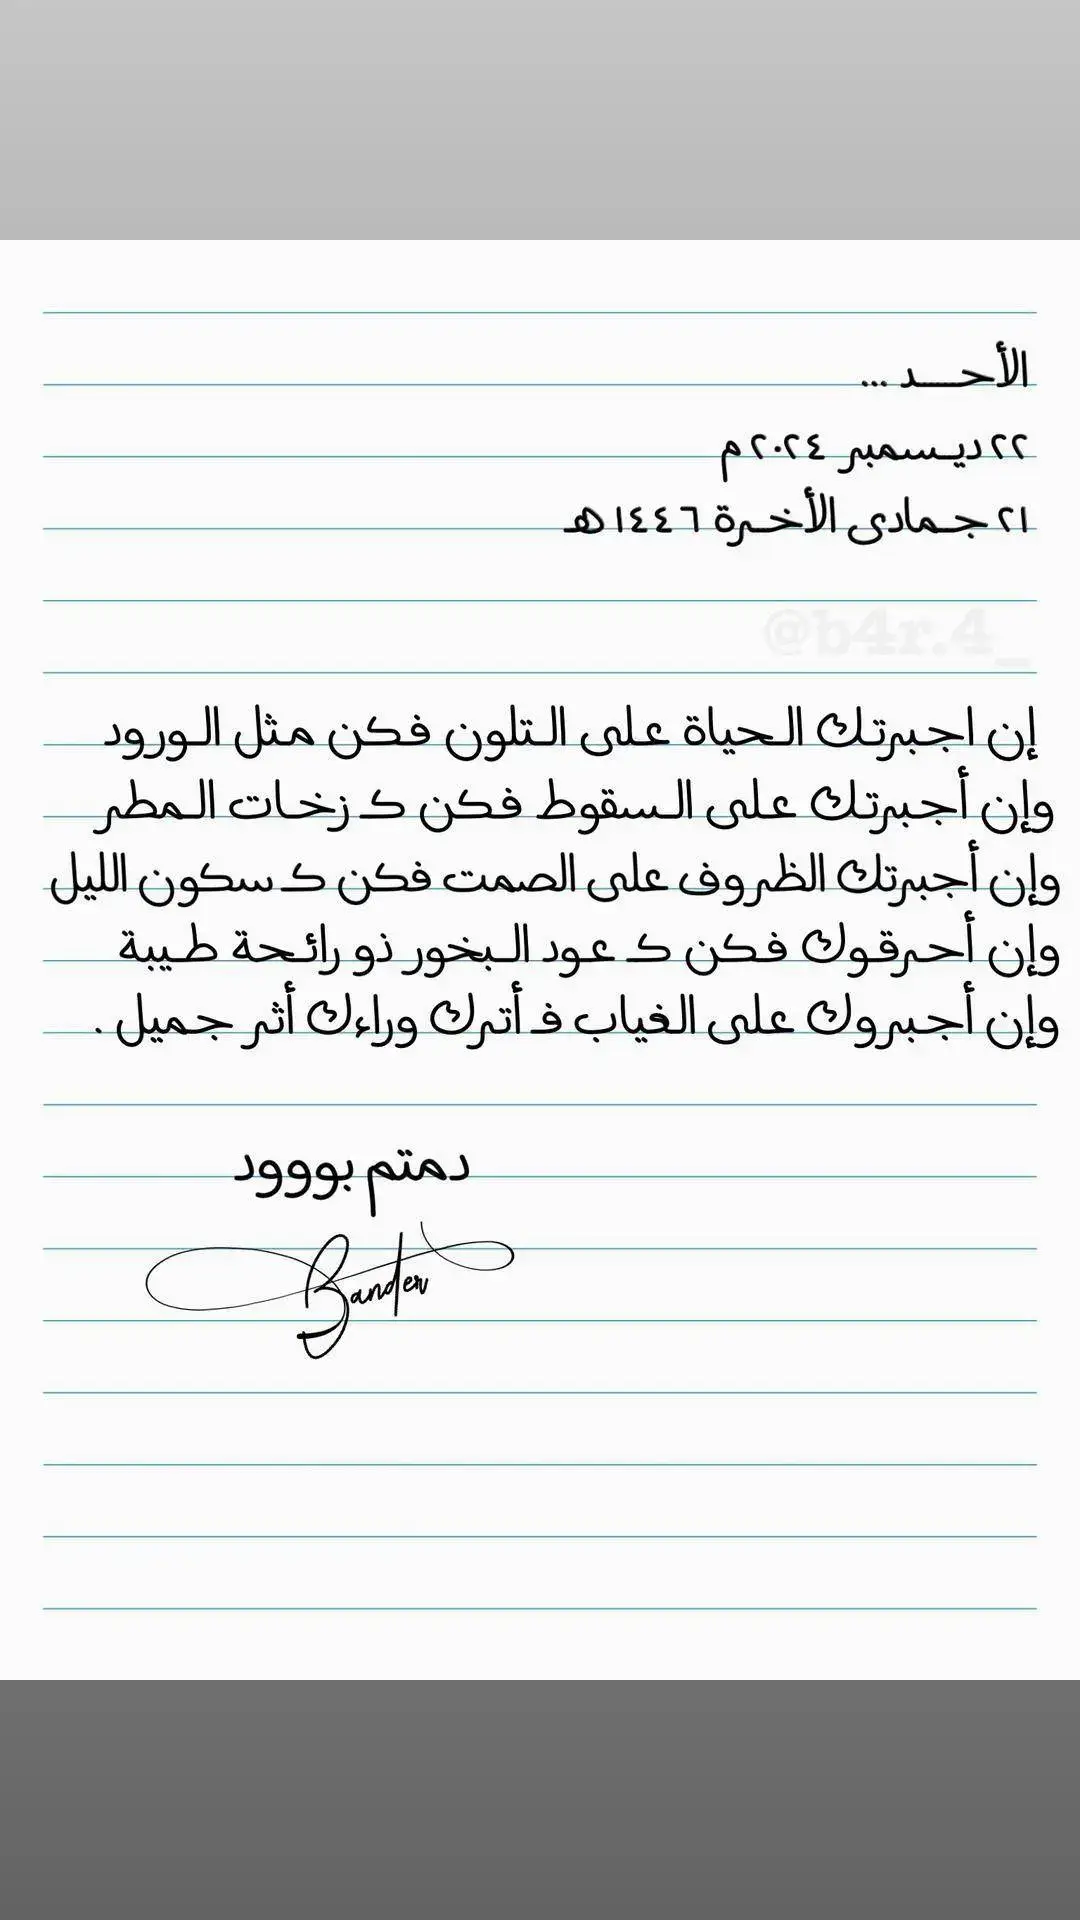 الأحـــد ...
٢٢ ديـسمبر ٢٠٢٤ م
٢١ جـمادى الأخـرة ١٤٤٦ هـ
@b4r.4_
إن اجبرتك الـحياة على الـتلون فكن مثل الـورود
وإن أجبرتك على الـسقوط فكن كـ زخـات الـمطر
وإن أجبرتك الظروف على الصمت فكن كـ سكون الليل
وإن أحـرقـوك فـكن كـ عـود الـبخور ذو رائـحة طـيبة
وإن أجـبروك على الغياب فـ أترك وراءك أثر جـميل .
دمتم بوووود
Bander